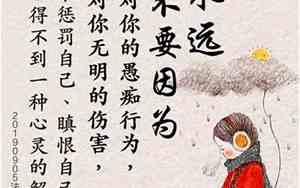 永远
不要因为
对你的愚痴行为，
对你无明的伤害，
惩罚自己、瞋恨自己
得不到一种心灵的解
20190905法